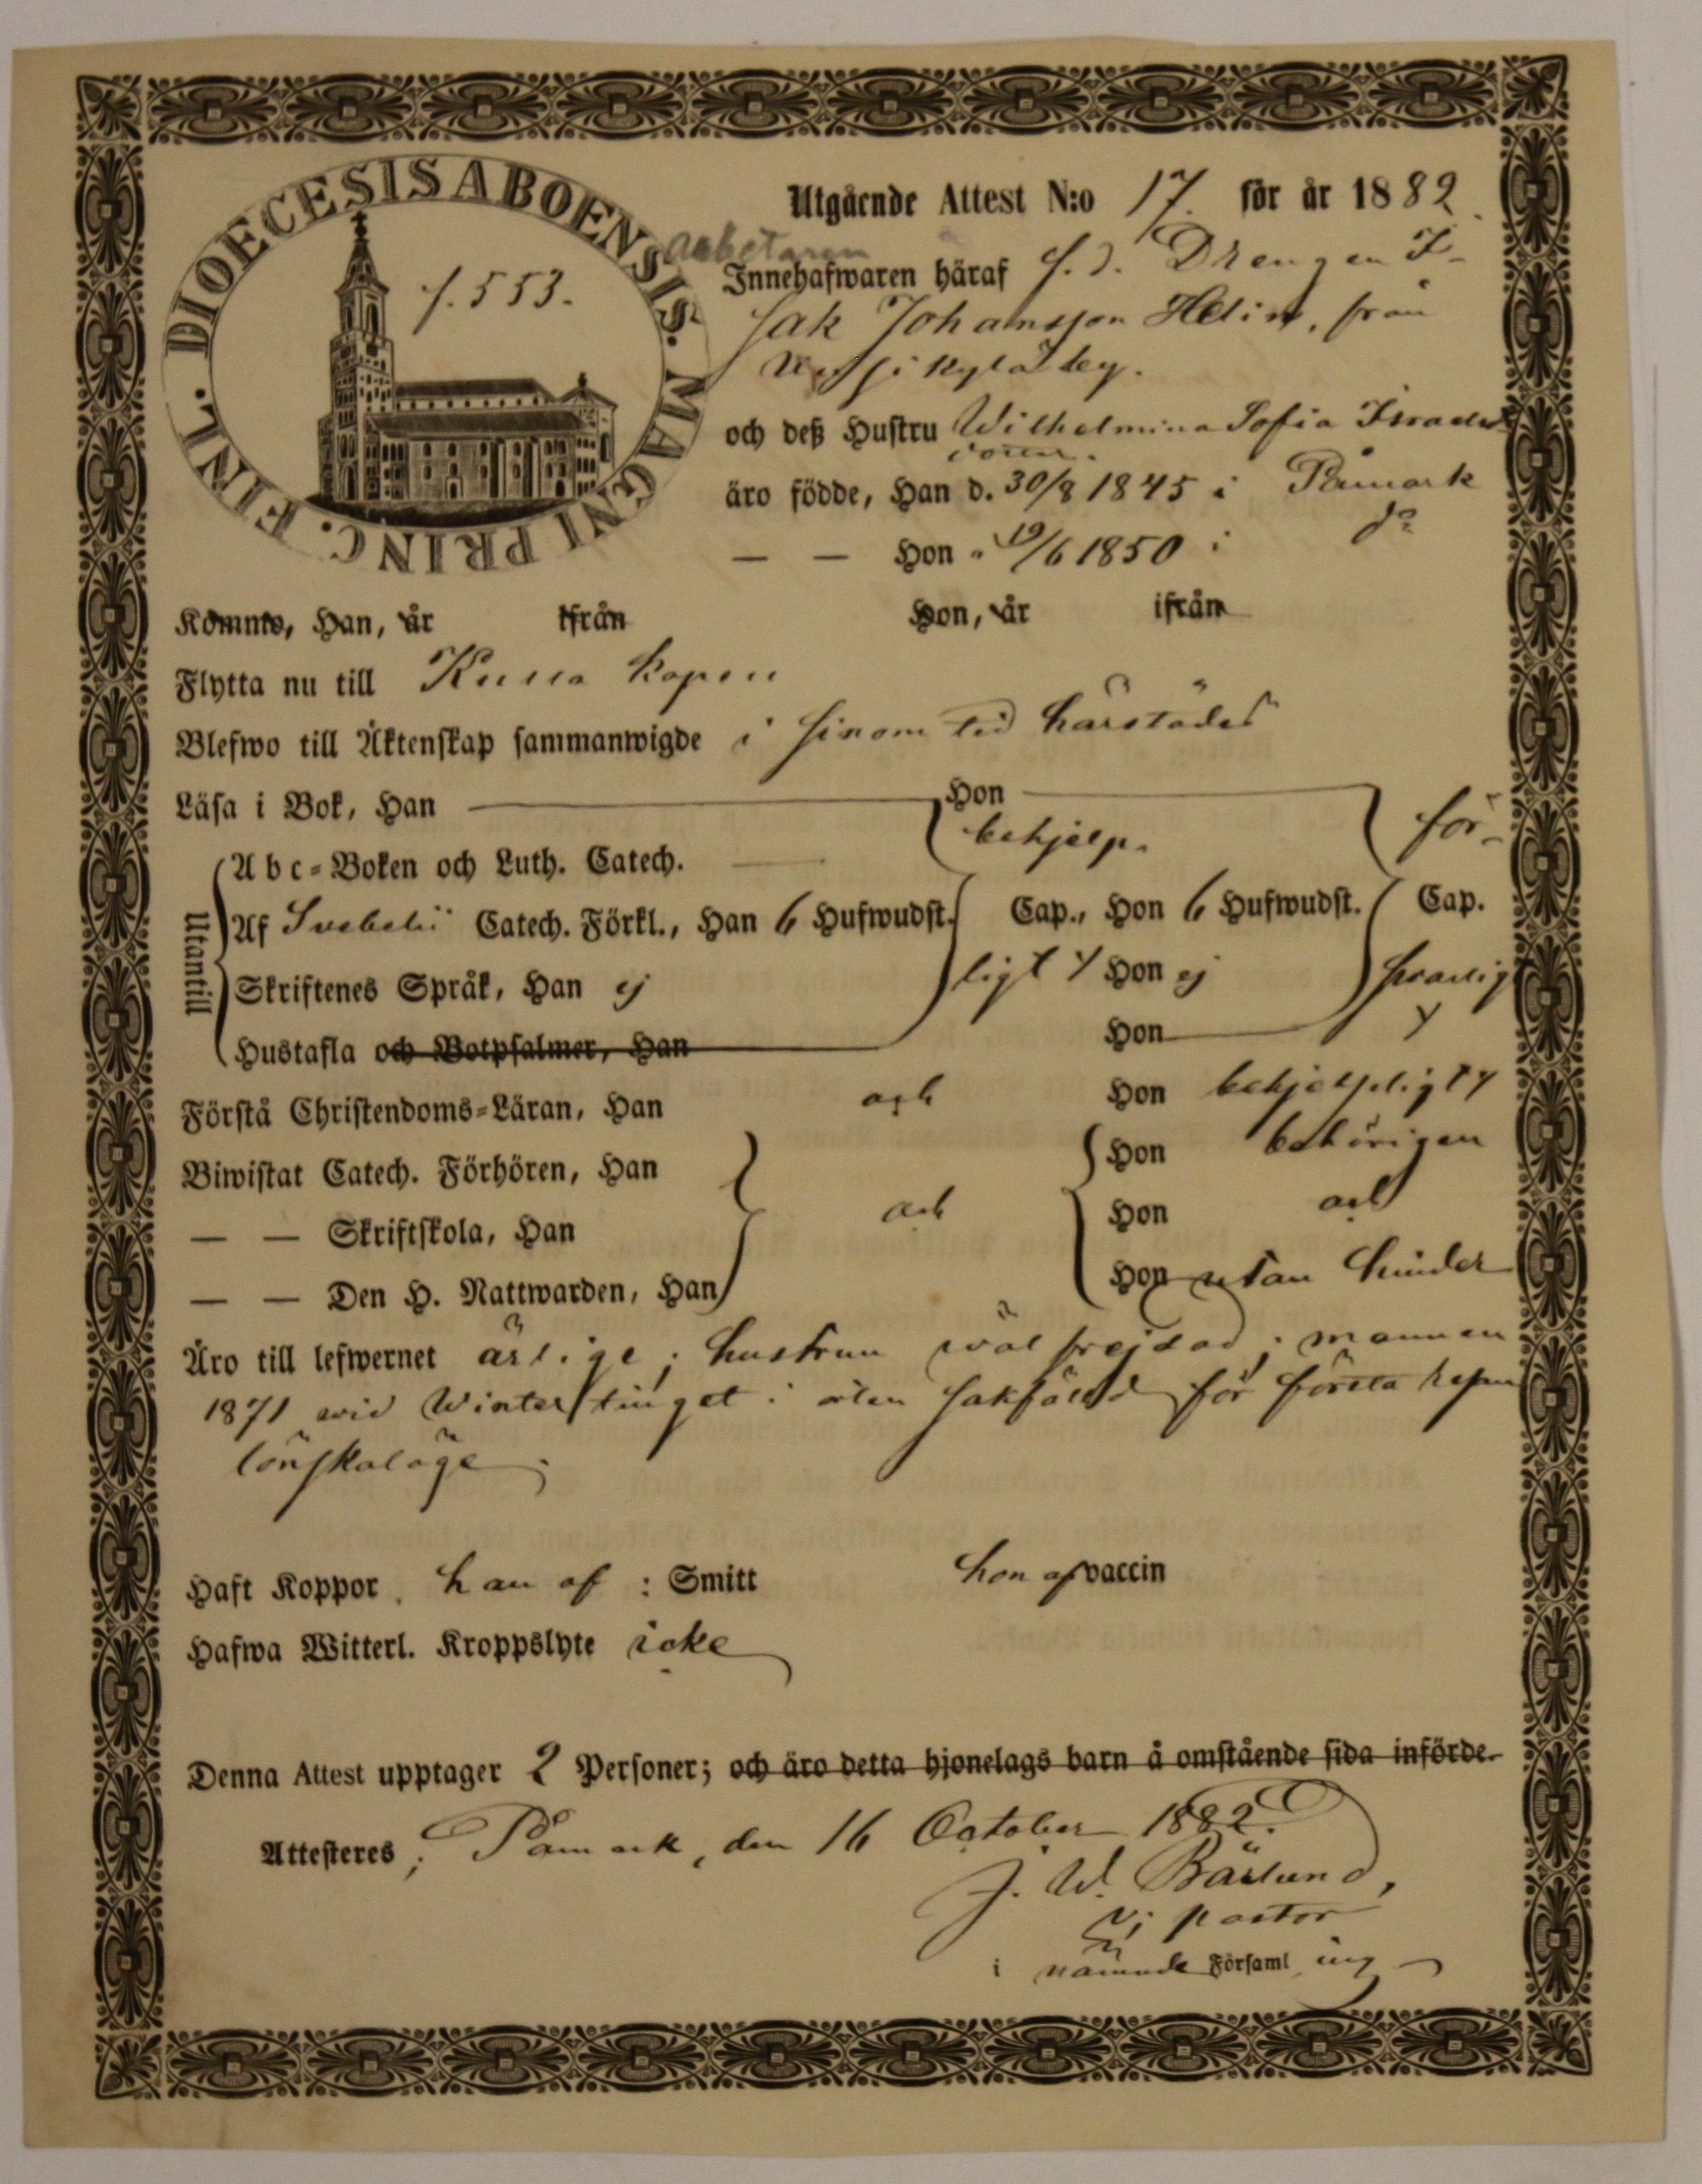 DIOECESIS ABOENSIS. MAGNI PRINC. FINL.
f. 553.
Utgående Attest N:o 17. för år 1882.
arbetaren
Innehafwaren häraf f. d. Drengen I-
sak Johansson Helin, från
by.
och deß Hustru Wilhelmina Sofia Israels
dotter.
äro födde, Han d. 30/8 1845 i Påmark
— — Hon " 19/6 1850 i d:o
Komne, Han, år ifrån Hon, år ifrån
Flytta nu till
Blefwo till Äktenskap sammanwigde i sinom tid härstädes
Läsa i Bok, Han Hon
behjelp- för-
Utantill
Abc-Boken och Luth. Catech.
Af Svebelii Catech. Förkl., Han 6 Hufwudst. Cap., Hon 6 Hufwudst. Cap.
Skriftenes Språk, Han ej ligt Hon ej svarligt
Hustafla och Botpsalmer, Han Hon
Förstå Christendoms-Läran, Han och Hon behjelpligt
Biwistat Catech. Förhören, Han Hon behörigen
— — Skriftskola, Han och Hon och
— — Den H. Nattwarden, Han Hon utan hinder
Äro till lefwernet ärlige; hustrun wäl frejdad; mannen
1871 wid Wintertinget i orten sakfälld för första resan
lönskaläge;
Haft Koppor, han af : Smitt hon af vaccin
Hafwa Witterl. Kroppslyte icke
Denna Attest upptager 2 Personer; och äro detta hjonelags barn å omstående sida införde.
Attesteres; Påmark, den 16 October 1882.
J. W. Bäslund,
v; pastor
i nämnde Församling